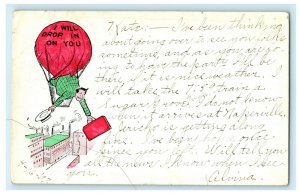 I WILL
DROP IN
ON YOU
Kate:- I've been thinking
about going over to see you folks
sometime, and as you are go
ing to have the party I'll be
there if it is nice weather. I
will take the 7:57 train a
Sugar Grove. I do not know
when it arrives at Naperville.
is getting along
fine. I've been once
since you left. Will tell you
all the news I know when I see
you. Alvina.